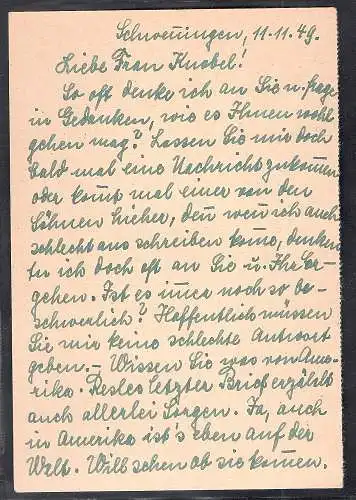 Schwenningen, 11.11.49.
Liebe Frau Knobel!
So oft denke ich an Sie u. frage
in Gedanken, wie es Ihnen wohl
gehen mag? Lassen Sie mir doch
bald mal eine Nachricht zukom̅en
oder kom̅t mal einer von den
Söhnen hieher, den̅ wen̅ ich auch
schlecht aus schreiben kom̅e, denken
tu ich doch oft an Sie u. Ihr Er-
gehen. Ist es im̅er noch so be-
schwerlich? Hoffentlich müssen
Sie mir keine schlechte Antwort
geben. – Wissen Sie was von Ame-
rika. Resles letzter Brief erzählt
auch allerlei Sorgen. Ja, auch
in Amerika ist's eben auf der
Welt. Will sehen ob sie kom̅en.